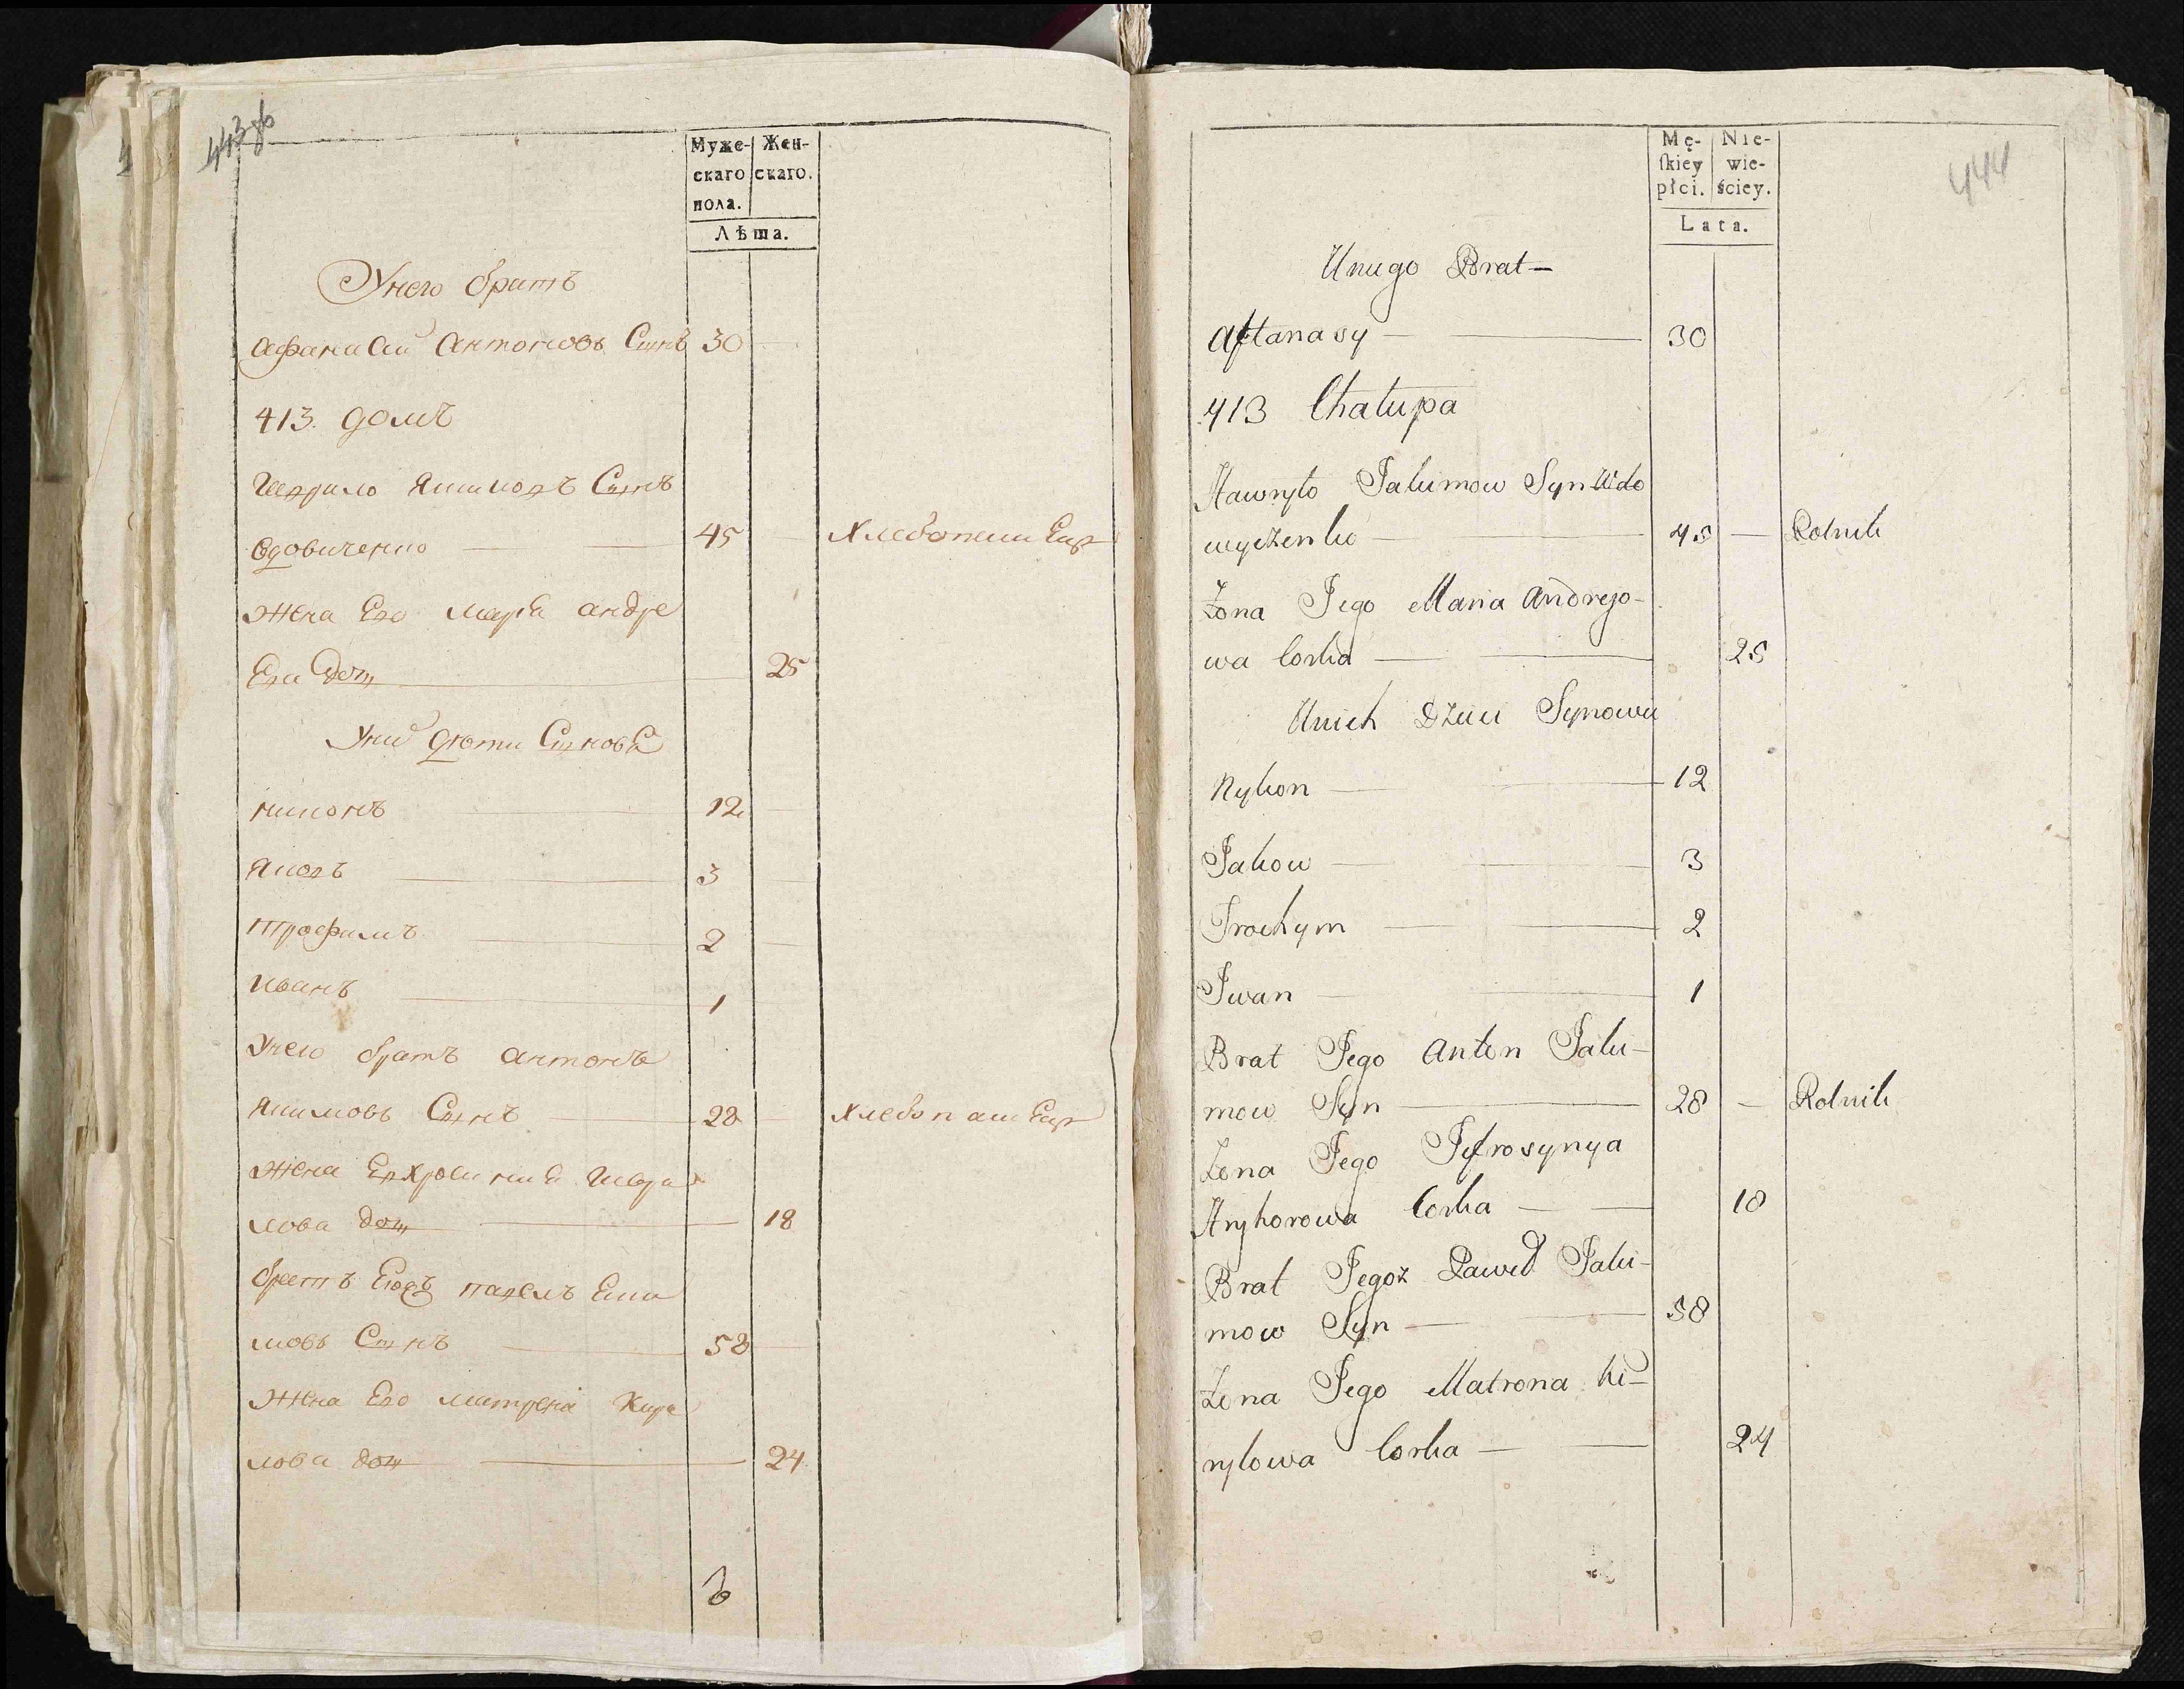 443об
Муже- Жен-
скаго скаго.
пола.
Лѣта.
Унего братъ
Афанасий Антоновъ Сынъ 30
413. домъ
Гаврило Якимовъ Сынъ
Вдовиченко 45 Хлебопашецъ
Жена Его Марья Андре
Ева дочь 25
Уних дети Сыновья
Никонъ 12
Яковъ 3
Трофимъ 2
Иванъ 1
Унего братъ Антонъ
Якимовъ Сынъ 28 Хлебопашецъ
Жена
кова дочь 18
братъ Павелъ Еки
мовъ Сынъ 58
Жена Его Матрена Кири
лова дочь 24
444
Mę- Nie-
ſkiey wie-
płci. ściey.
Lata.
Unugo Brat —
Aftanasy — 30
413 Chatupa
Hawryło Jakimow Syn Wdo
wyczenko — 45 — Rolnik
Żona Jego Maria Andrejo-
wa Corka — 25
Unich Dzieci Synowie
Nykon — 12
Jakow — 3
Trochym — 2
Iwan — 1
Brat Jego Anton Jaki-
mow Syn — 28 — Rolnik
Żona Jego Jefrosynya
Hryhorowa Corka — 18
Brat Jegoż Paweł Jaki-
mow Syn — 58
Żona Jego Matrona Ki-
ryłowa Corka — 24